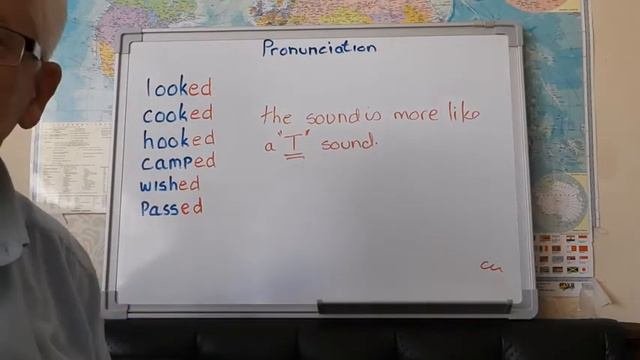 Pronunciation
looked
cooked
hooked
camped
wished
passed
the sound is more like
a "T" sound.